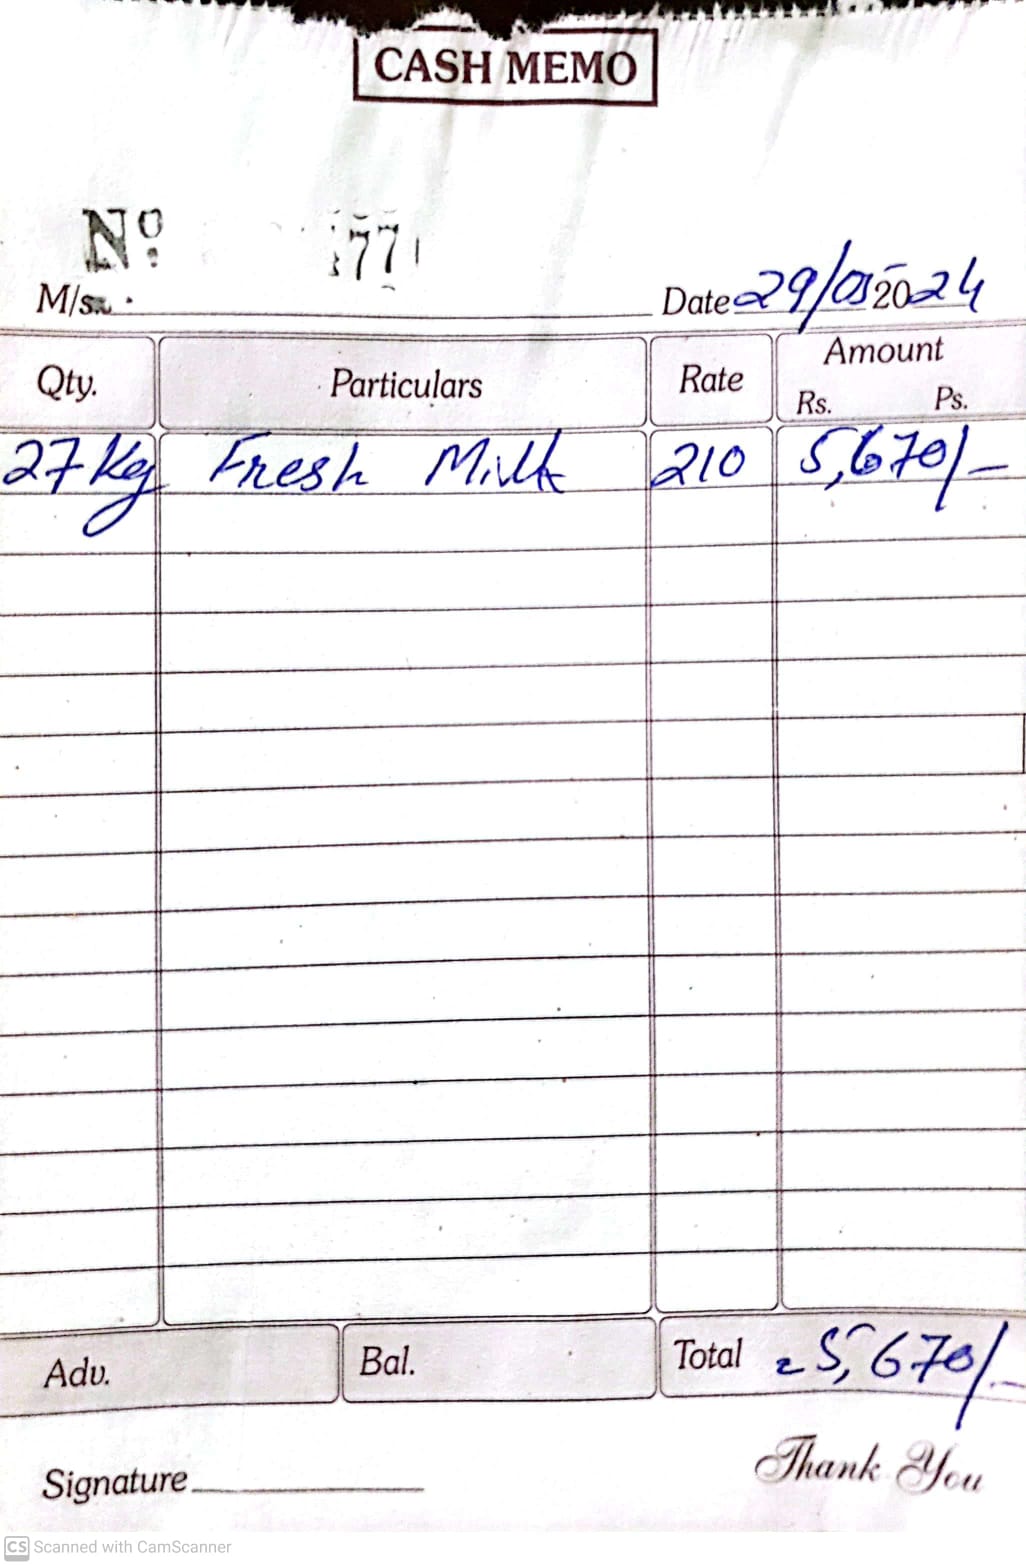 CASH MEMO
Nº 771
M/s.
Date 29/05 2024
Qty. Particulars Rate Amount
Rs. Ps.
27 Kg Fresh Milk 210 5,670/-
Adv. Bal. Total =5,670/-
Signature
Thank You
CS Scanned with CamScanner